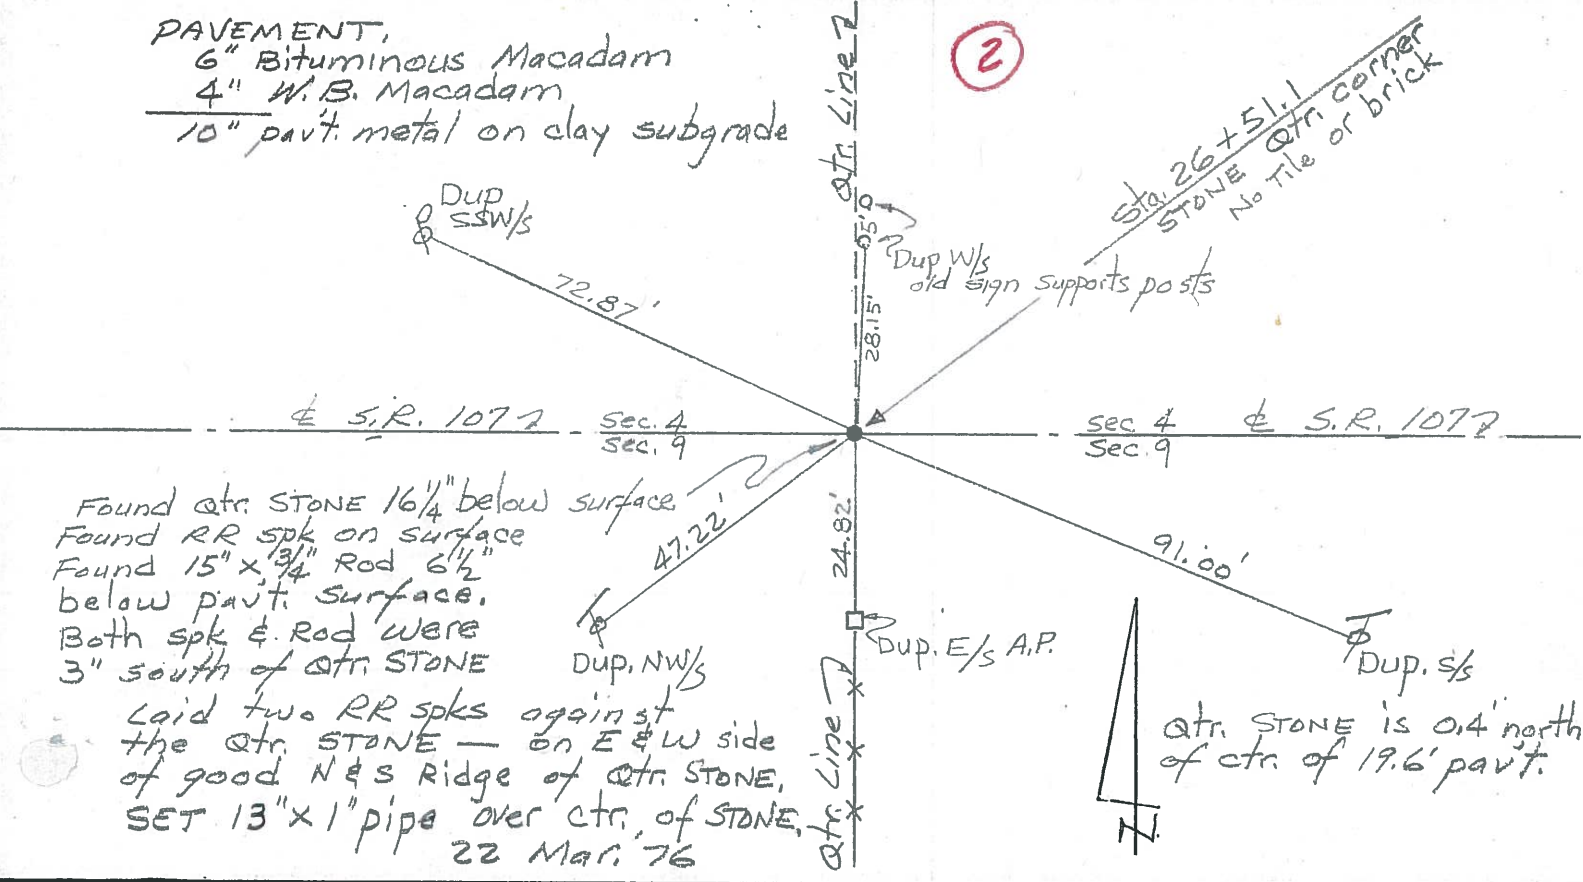 PAVEMENT,
6" Bituminous Macadam
4" W.B. Macadam
10" pav't. metal on clay subgrade
2
Qtr. Line
Sta. 26 + 51.1
STONE Qtr. corner
No Tile or brick
Dup
SSW/s
72.87'
28.15'
Dup W/s
old sign supports posts
℄ S.R. 107
sec. 4
sec. 9
sec 4
Sec. 9
℄ S.R. 107
Found Qtr. STONE 16¼" below surface
Found RR spk on surface
Found 15" x ¾" Rod 6½"
below pav't. surface.
Both spk & Rod were
3" south of Qtr. STONE
Laid two RR spks against
the Qtr. STONE — on E & W side
of good N & S Ridge of Qtr. STONE.
SET 13" x 1" pipe over ctr. of STONE.
22 Mar. '76
47.22'
Dup. NW/s
24.82'
Dup. E/s A.P.
Qtr. Line
91.00'
Dup. S/s
Qtr. STONE is 0.4' north
of ctr. of 19.6' pav't.
N.